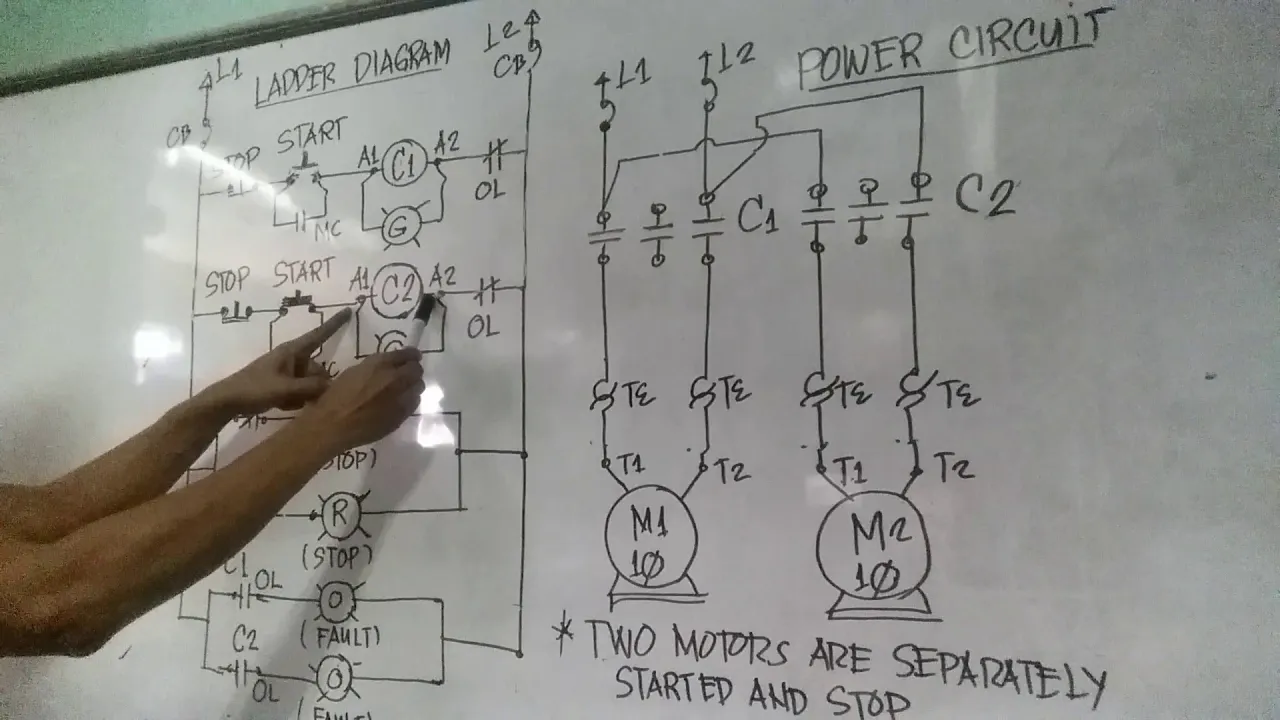 LADDER DIAGRAM
L1
L2
CB
CB
STOP
START
A1
C1
A2
MC
G
OL
STOP
START
A1
C2
A2
OL
G
MC
STOP)
R
(STOP)
C1
OL
O
(FAULT)
C2
OL
O
(FAULT)
POWER CIRCUIT
L1
L2
C1
C2
TƐ
TƐ
TƐ
TƐ
T1
T2
T1
T2
M1
1Ø
M2
1Ø
* TWO MOTORS ARE SEPARATELY
STARTED AND STOP